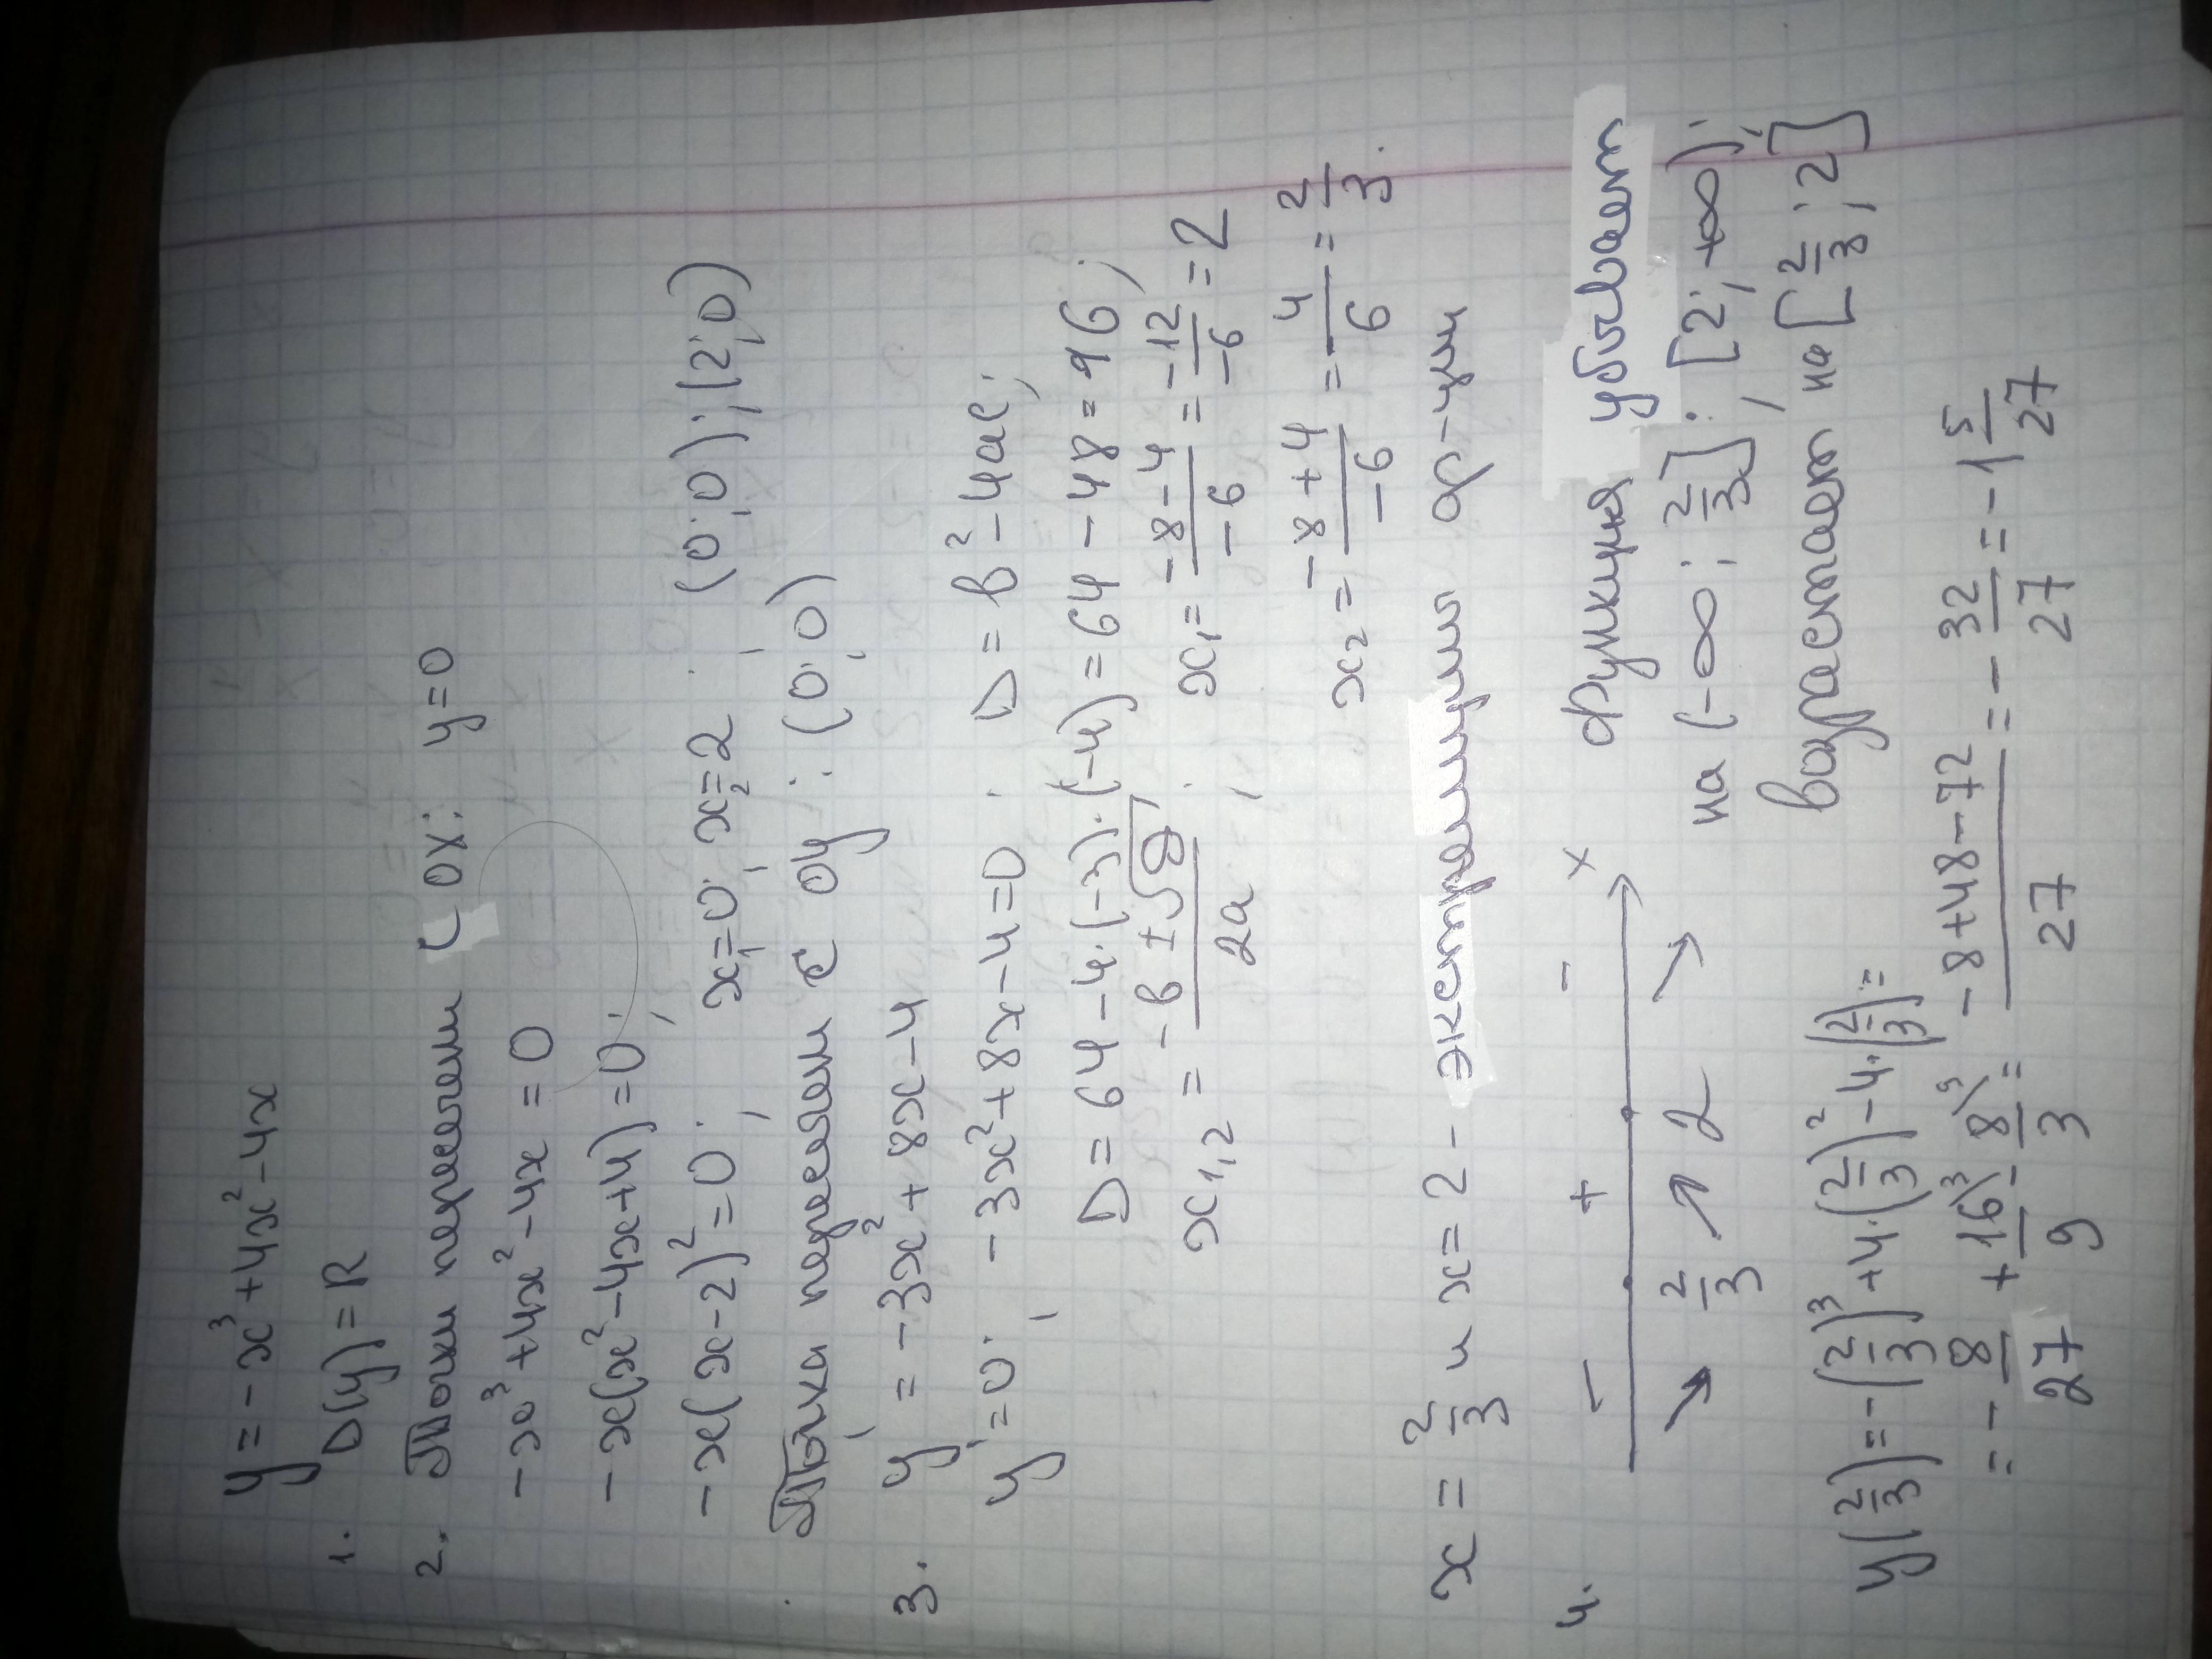 y = -x³ + 4x² - 4x
1. D(y) = R
2. Точки пересечен с OX: y = 0
-x³ + 4x² - 4x = 0
-x(x² - 4x + 4) = 0;
-x(x - 2)² = 0; x₁ = 0; x₂ = 2; (0; 0); (2; 0)
Точка пересечен с OY: (0; 0)
3. y' = -3x² + 8x - 4
y' = 0; -3x² + 8x - 4 = 0; D = b² - 4ac;
D = 64 - 4·(-3)·(-4) = 64 - 48 = 96;
x₁,₂ = (-b ± √D)/2a; x₁ = (-8 - 4)/-6 = -12/-6 = 2
x₂ = (-8 + 4)/-6 = 4/6 = 2/3.
x = 2/3 и x = 2 - экстремумы ф-ции
4. - + - x
↘ 2/3 ↗ 2 ↘
Функция убывает
на (-∞; 2/3]; [2; +∞);
возрастает на [2/3; 2]
y(2/3) = -(2/3)³ + 4·(2/3)² - 4·(2/3) =
= -8/27 + 16\³/9 - 8\⁹/3 = (-8 + 48 - 72)/27 = -32/27 = -1 5/27